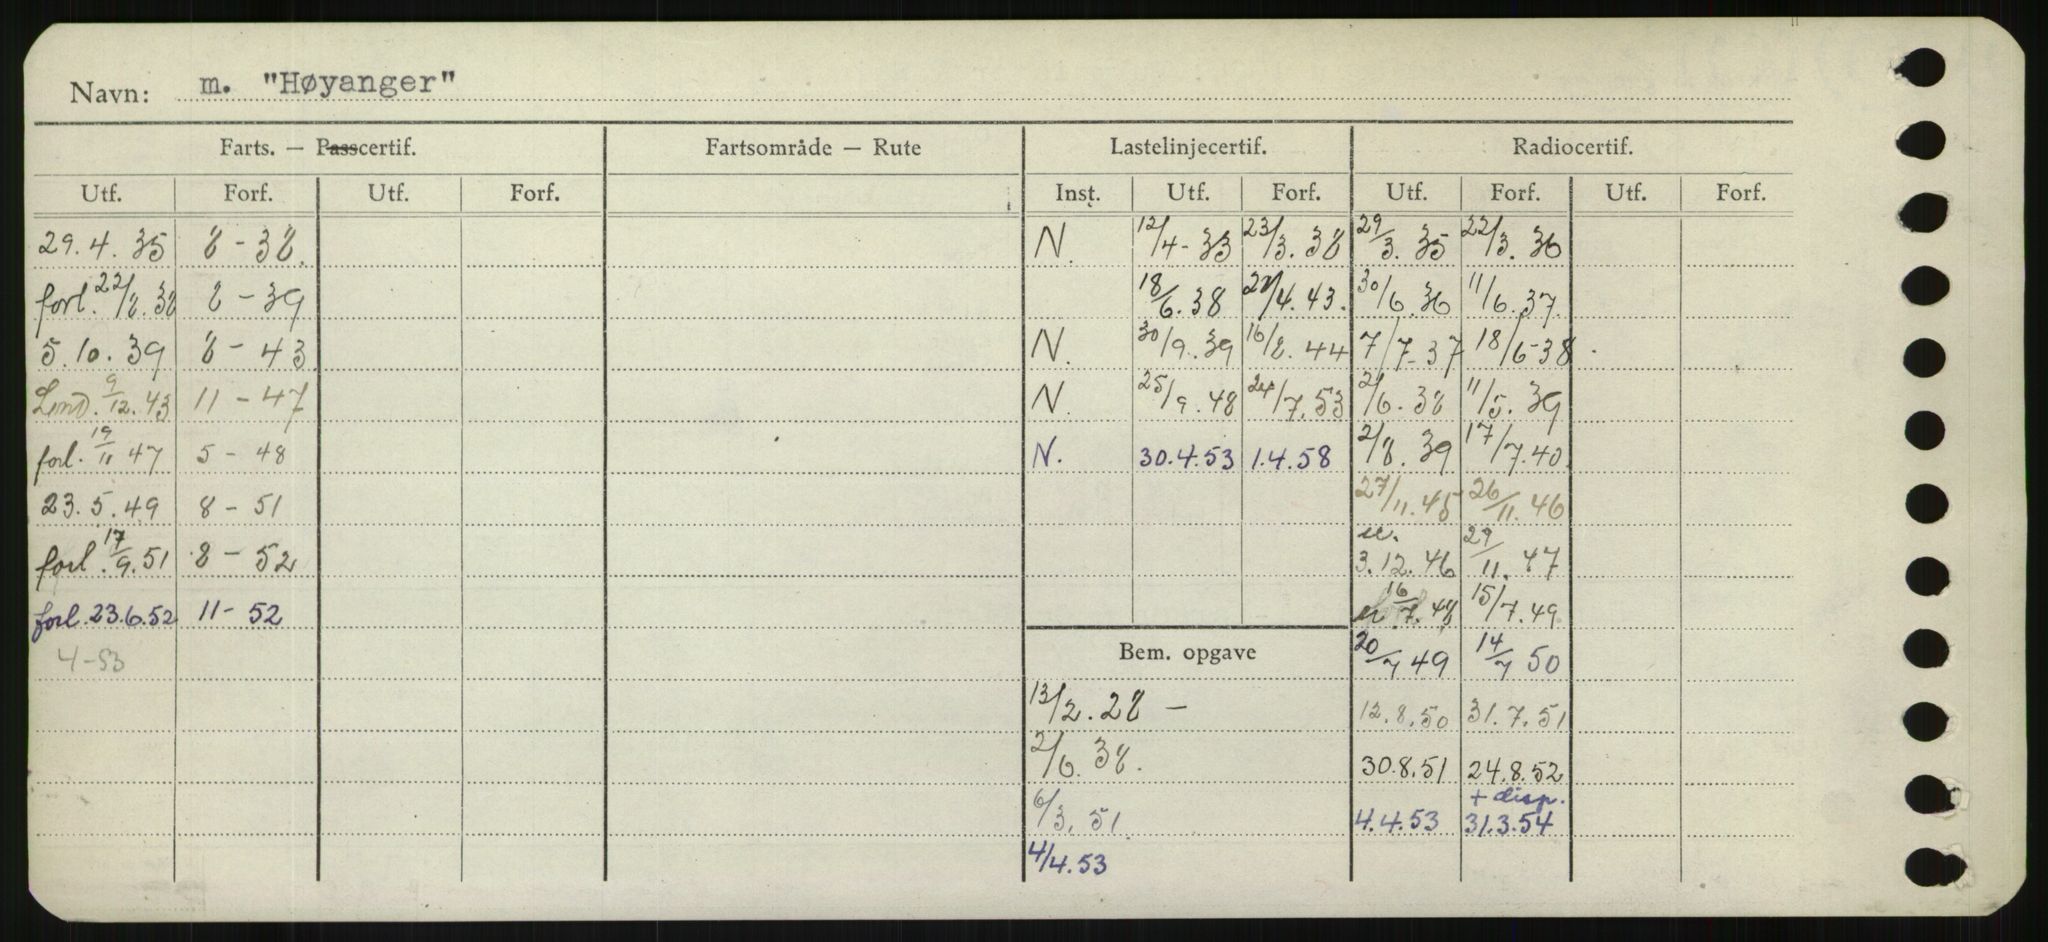 Navn: m. "Høyanger"
Farts. — Passcertif. Fartsområde — Rute Lastelinjecertif. Radiocertif.
Utf. Forf. Utf. Forf. Inst. Utf. Forf. Utf. Forf. Utf. Forf.
29.4.35 8-38. N. 12/4-33 23/3.38 29/3.35 22/3.36
forl. 22/8.38 8-39 18/6.38 27/4.43. 30/6.36 11/6.37.
5.10.39 8-43 N. 30/9.39 16/8.44 7/7-37 18/6-38
Lond. 9/12.43 11-47 N. 25/9.48 24/7.53 2/6.38 11/5.39
forl. 19/11 47 5-48 N. 30.4.53 1.4.58 2/8.39 17/7.40.
23.5.49 8-51 27/11.45 26/11.46
forl. 17/9.51 8-52 3.12.46 29/11.47
forl. 23.6.52 11-52 16/7.48 15/7.49
4-53 Bem. opgave 20/7 49 14/7 50
13/2.28 - 12.8.50 31.7.51
2/6.38. 30.8.51 24.8.52
+ disp.
6/3.51. 4.4.53 31.3.54
4/4.53